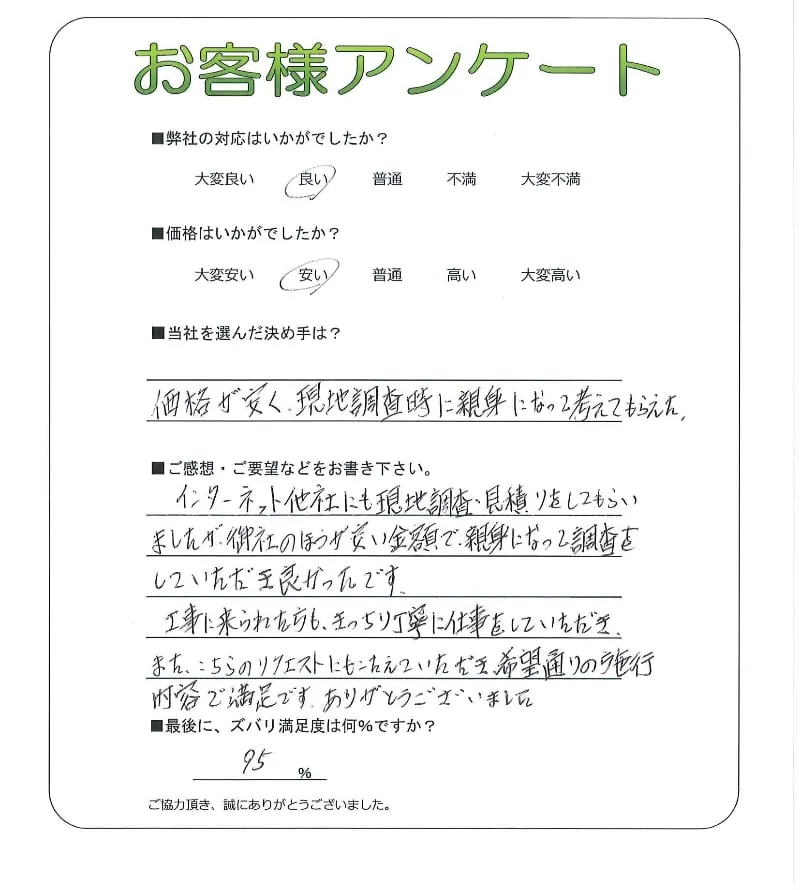 お客様アンケート
■弊社の対応はいかがでしたか？
大変良い 良い 普通 不満 大変不満
■価格はいかがでしたか？
大変安い 安い 普通 高い 大変高い
■当社を選んだ決め手は？
価格が安く、現地調査時に親身になって考えてもらえた。
■ご感想・ご要望などをお書き下さい。
インターネット他社にも現地調査・見積りをしてもらい
ましたが、御社のほうが安い金額で、親身になって調査を
していただき良かったです。
工事に来られた方も、きっちり丁寧に仕事をしていただき、
また、こちらのリクエストにもこたえていただき、希望通りの施行
内容で満足です。ありがとうございました
■最後に、ズバリ満足度は何％ですか？
95 %
ご協力頂き、誠にありがとうございました。